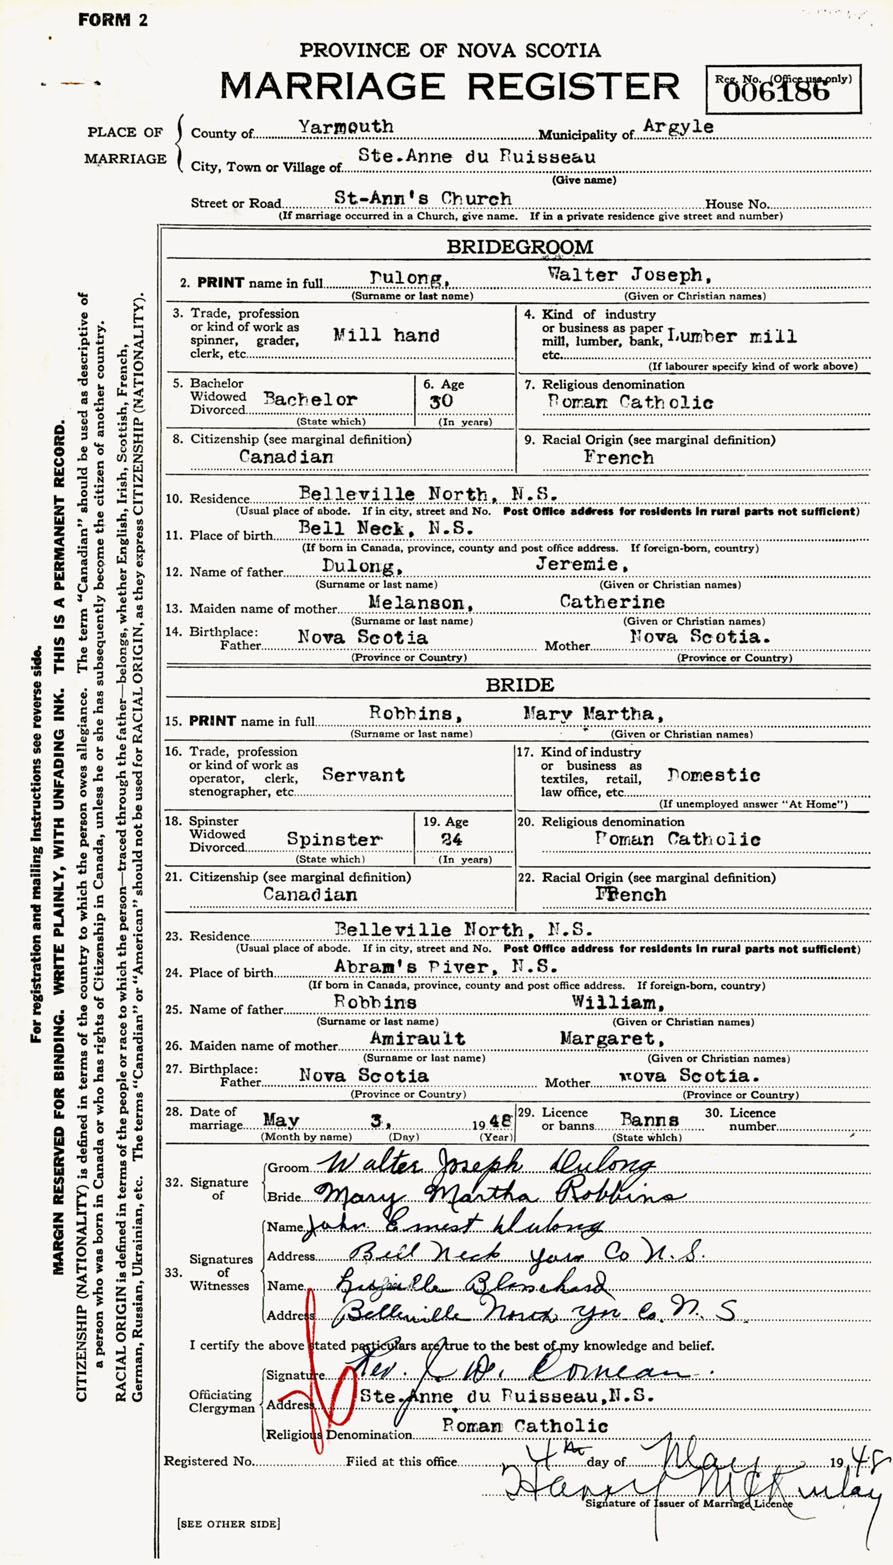 FORM 2
PROVINCE OF NOVA SCOTIA
MARRIAGE REGISTER
Reg. No. (Office use only)
006186
PLACE OF MARRIAGE
County of Yarmouth Municipality of Argyle
City, Town or Village of Ste.Anne du Ruisseau
(Give name)
Street or Road St-Ann's Church House No.
(If marriage occurred in a Church, give name. If in a private residence give street and number)
BRIDEGROOM
2. PRINT name in full Dulong, Walter Joseph,
(Surname or last name) (Given or Christian names)
3. Trade, profession or kind of work as spinner, grader, clerk, etc. Mill hand
4. Kind of industry or business as paper mill, lumber, bank, etc. Lumber mill
(If labourer specify kind of work above)
5. Bachelor Widowed Divorced Bachelor
(State which)
6. Age 30
(In years)
7. Religious denomination
Roman Catholic
8. Citizenship (see marginal definition)
Canadian
9. Racial Origin (see marginal definition)
French
10. Residence Belleville North, N.S.
(Usual place of abode. If in city, street and No. Post Office address for residents in rural parts not sufficient)
11. Place of birth Bell Neck, N.S.
(If born in Canada, province, county and post office address. If foreign-born, country)
12. Name of father Dulong, Jeremie,
(Surname or last name) (Given or Christian names)
13. Maiden name of mother Melanson, Catherine
(Surname or last name) (Given or Christian names)
14. Birthplace:
Father Nova Scotia Mother Nova Scotia.
(Province or Country) (Province or Country)
BRIDE
15. PRINT name in full Robbins, Mary Martha,
(Surname or last name) (Given or Christian names)
16. Trade, profession or kind of work as operator, clerk, stenographer, etc. Servant
17. Kind of industry or business as textiles, retail, law office, etc. Domestic
(If unemployed answer "At Home")
18. Spinster Widowed Divorced Spinster
(State which)
19. Age 24
(In years)
20. Religious denomination
Roman Catholic
21. Citizenship (see marginal definition)
Canadian
22. Racial Origin (see marginal definition)
French
23. Residence Belleville North, N.S.
(Usual place of abode. If in city, street and No. Post Office address for residents in rural parts not sufficient)
24. Place of birth Abram's River, N.S.
(If born in Canada, province, county and post office address. If foreign-born, country)
25. Name of father Robbins William,
(Surname or last name) (Given or Christian names)
26. Maiden name of mother Amirault Margaret,
(Surname or last name) (Given or Christian names)
27. Birthplace:
Father Nova Scotia Mother Nova Scotia.
(Province or Country) (Province or Country)
28. Date of marriage May 3, 1948
(Month by name) (Day) (Year)
29. Licence or banns Banns
(State which)
30. Licence number
32. Signature of
Groom Walter Joseph Dulong
Bride Mary Martha Robbins
33. Signatures of Witnesses
Name John Ernest Dulong
Address Bell Neck Yar Co N.S.
Name Blanchard
Address Belleville North Yar Co. N.S.
I certify the above stated particulars are true to the best of my knowledge and belief.
Officiating Clergyman
Signature Rev. Comeau
Address Ste.Anne du Ruisseau,N.S.
Religious Denomination Roman Catholic
Registered No. Filed at this office 4th day of May 1948
Harry McKinlay
Signature of Issuer of Marriage Licence
[SEE OTHER SIDE]
For registration and mailing instructions see reverse side.
MARGIN RESERVED FOR BINDING. WRITE PLAINLY, WITH UNFADING INK. THIS IS A PERMANENT RECORD.
CITIZENSHIP (NATIONALITY) is defined in terms of the country to which the person owes allegiance. The term "Canadian" should be used as descriptive of
a person who was born in Canada or who has rights of Citizenship in Canada, unless he or she has subsequently become the citizen of another country.
RACIAL ORIGIN is defined in terms of the people or race to which the person—traced through the father—belongs, whether English, Irish, Scottish, French,
German, Russian, Ukrainian, etc. The terms "Canadian" or "American" should not be used for RACIAL ORIGIN, as they express CITIZENSHIP (NATIONALITY).